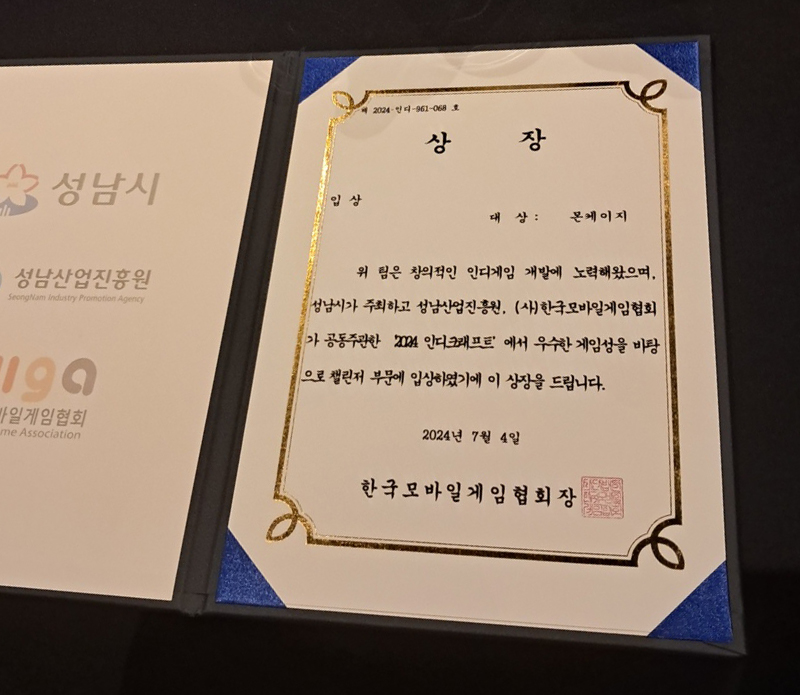 성남시
성남산업진흥원
SeongNam Industry Promotion Agency
바일게임협회
me Association
제 2024-인디-961-068 호
상 장
입 상
대 상 : 몬케이지
위 팀은 창의적인 인디게임 개발에 노력해왔으며,
성남시가 주최하고 성남산업진흥원, (사)한국모바일게임협회
가 공동주관한 '2024 인디크래프트' 에서 우수한 게임성을 바탕
으로 챌린저 부문에 입상하였기에 이 상장을 드립니다.
2024년 7월 4일
한국모바일게임협회장